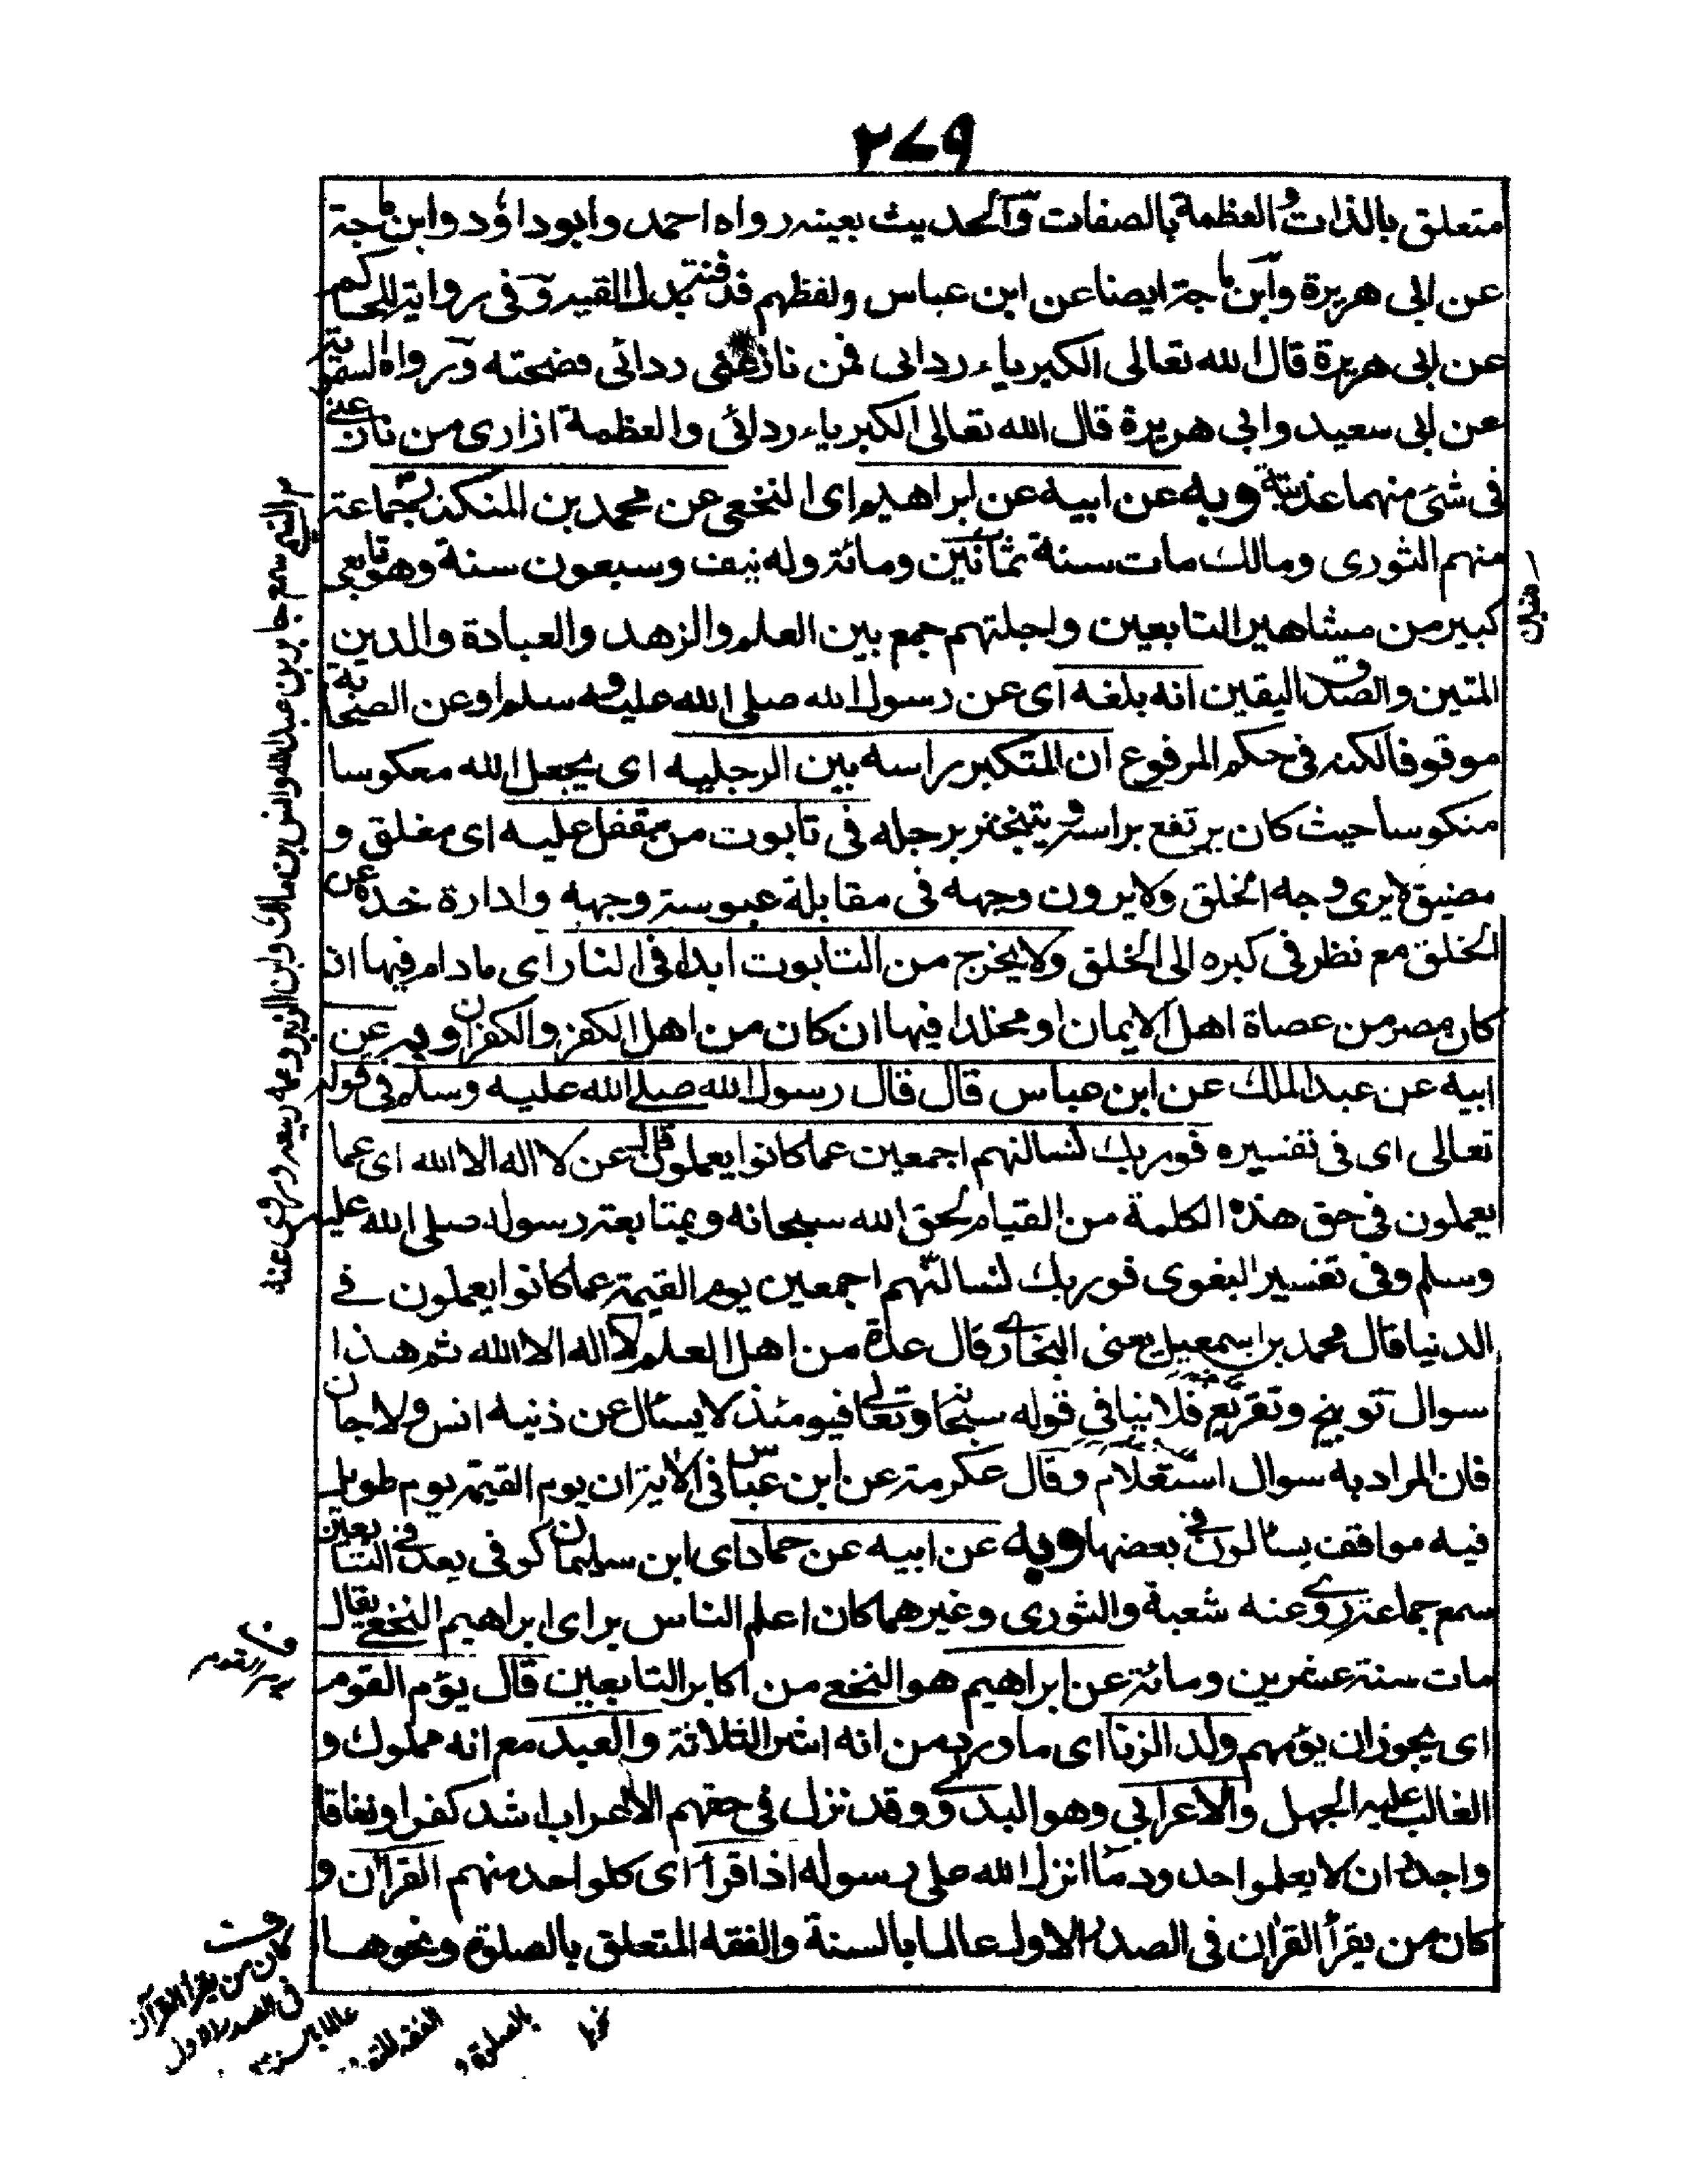 ٢٧٩
متعلق بالذات والعظمة بالصفات والحديث بعينه رواه احمد وابوداؤد وابن ماجة
عن ابى هريرة وابن ماجة ايضا عن ابن عباس ولفظهم قذفته بدل القيه وفى رواية للحاكم
عن ابى هريرة قال الله تعالى الكبرياء ردائى فمن نازعنى ردائى قصمته ورواه السمويه
عن ابى سعيد وابى هريرة قال الله تعالى الكبرياء ردائى والعظمة ازارى من نازعنى
فى شئ منهما عذبته وبه عن ابيه عن ابراهيم اى النخعى عن محمد بن المنكدر جماعة
منهم الثورى ومالك مات سنة ثمانين ومائة وله نيف وسبعون سنة وهو تابعى
كبير من مشاهير التابعين واجلتهم جمع بين العلم والزهد والعبادة والدين
المتين والصدق اليقين انه بلغه اى عن رسول الله صلى الله عليه وسلم او عن الصحابة
موقوفا لكنه فى حكم المرفوع ان المتكبر راسه بين الرجليه اى يجعل الله معكوسا
منكوسا حيث كان يرتفع براسه ويتبختر برجله فى تابوت من مقفل عليه اى مغلق و
مضيق لايرى وجه الخلق ولايرون وجهه فى مقابلة عبوسة وجهه وادارة خده عن
الخلق مع نظر فى كبره الى الخلق ولايخرج من التابوت ابدا فى النار اى مادام فيها ان
كان مصر من عصاة اهل الايمان او مخلدا فيها ان كان من اهل الكفر والكفران وبه عن
ابيه عن عبد الملك عن ابن عباس قال قال رسول الله صلى الله عليه وسلم فى قوله
تعالى اى فى تفسيره فوربك لنسالنهم اجمعين عما كانوا يعملون قال عن لا اله الا الله اى عما
يعملون فى حق هذه الكلمة من القيام لحق الله سبحانه وبمتابعة رسوله صلى الله عليه
وسلم وفى تفسير البغوى فوربك لنسالنهم اجمعين يوم القيمة عما كانوا يعملون فى
الدنيا قال محمد بن اسمعيل يعنى البخارى قال عدة من اهل العلم لا اله الا الله ثم هذا
سوال توبيخ وتقريع فلا ينافى قوله سبحانه وتعالى فيومئذ لا يسئال عن ذنبه انس ولا جان
فان المراد به سوال استعلام وقال عكرمة عن ابن عباس فى الاية ان يوم القيمة يوم طويل
فيه مواقف يسئالون فى بعضها وبه عن ابيه عن حماد اى ابن سليمان كوفى يعد فى التابعين
سمع جماعة روى عنه شعبة والثورى وغيرهما كان اعلم الناس براى ابراهيم النخعى يقال
مات سنة عشرين ومائة عن ابراهيم هو النخعى من اكابر التابعين قال يؤم القوم
اى يجوز ان يؤمهم ولد الزنا اى ما ورد من انه اشر الثلاثة والعبد مع انه مملوك و
الغالب عليه الجهل والاعرابى وهو البدوى وقد نزل فى حقهم الاعراب اشد كفرا ونفاقا
واجدر ان لا يعلموا حدود ما انزل الله على رسوله اذا قرأ اى كلواحد منهم القرآن و
كان من يقرأ القرآن فى الصدر الاول عالما بالسنة والفقه المتعلق بالصلوة ونحوها
م التيمى سمع جابر بن عبد الله وانس بن مالك وابن الزبير وعمه ربيعة وروى عنه
يوم القوم
كان من يقرأ القرآن
فى الصدر الاول
عالما بالسنة
الفقه المتعلق
بالصلوة و
نحوها